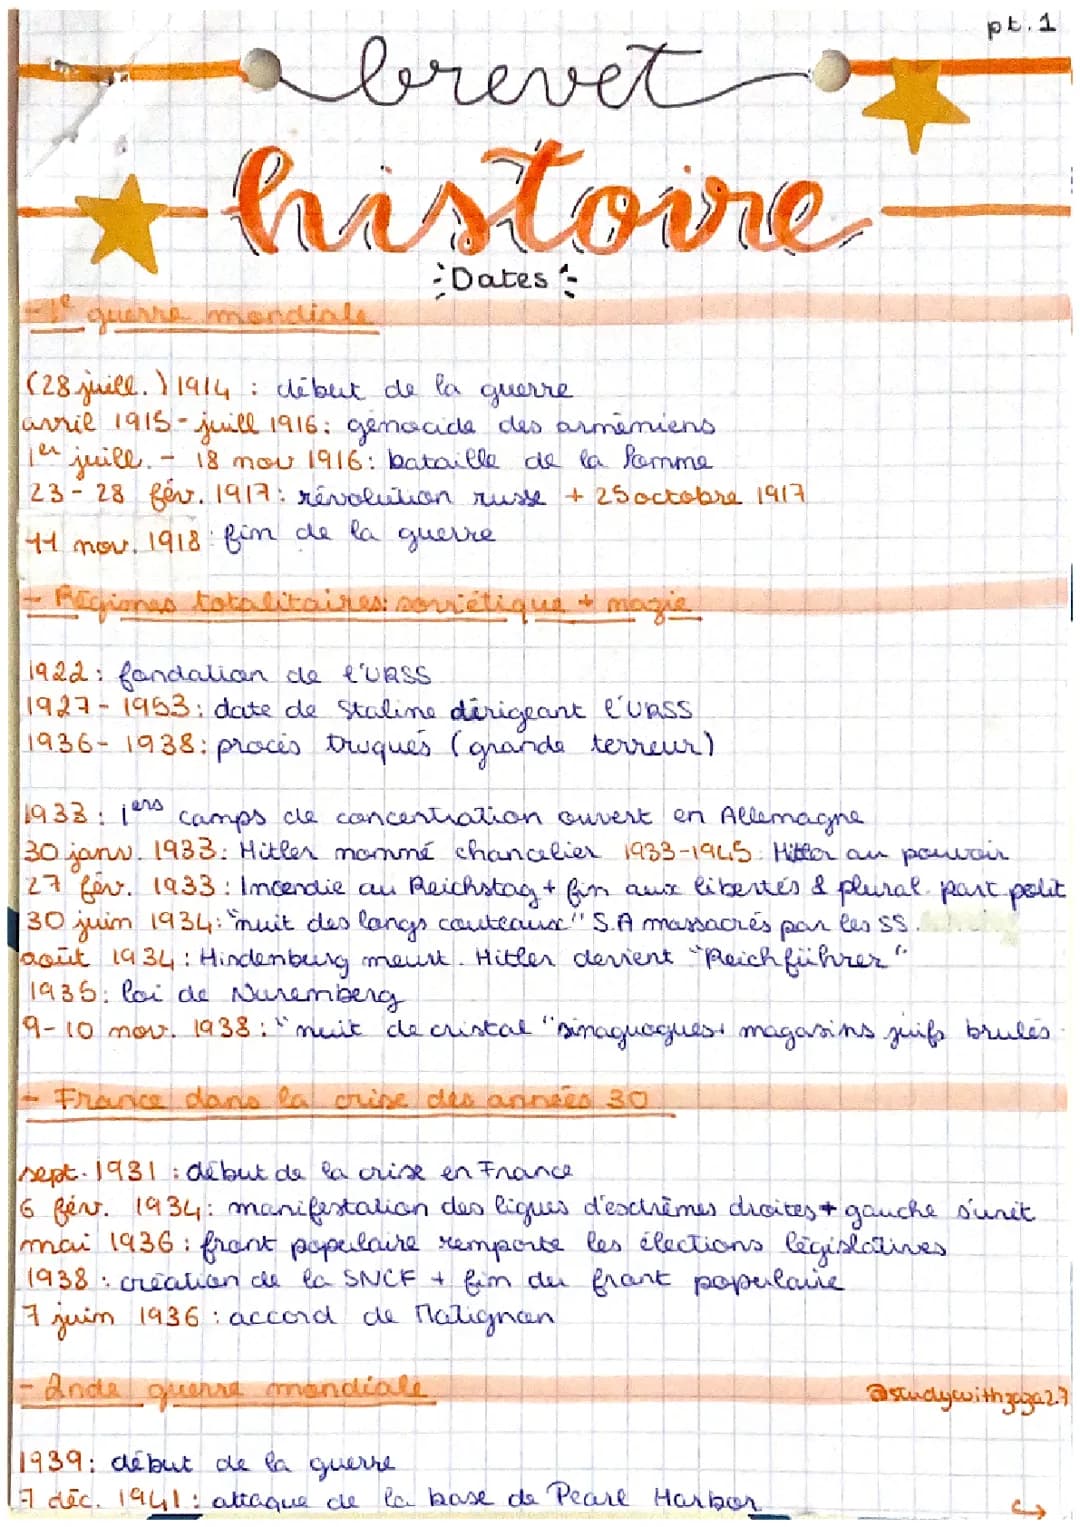 pt.1
brevet
histoire
Dates
- 1e guerre mondiale
(28 juill.) 1914 : début de la guerre
avril 1915 - juill 1916 : génocide des arméniens
1er juill. - 18 nov 1916 : bataille de la Somme
23 - 28 fév. 1917 : révolution russe + 25 octobre 1917
11 nov. 1918 : fin de la guerre
- Régimes totalitaires: soviétique + nazie
1922 : fondation de l'URSS
1927 - 1953 : date de Staline dirigeant l'URSS
1936 - 1938 : procès truqués (grande terreur)
1933 : 1ers camps de concentration ouvert en Allemagne
30 janv. 1933 : Hitler nommé chancelier 1933-1945 : Hitler au pouvoir
27 fév. 1933 : Incendie au Reichstag + fin aux libertés & plural. part. polit
30 juin 1934 : "nuit des longs couteaux" S.A massacrés par les SS.
août 1934 : Hindenburg meurt. Hitler devient "Reichführer".
1935 : loi de Nuremberg
9-10 nov. 1938 : "nuit de cristal" sinaguogues + magasins juifs brulés
- France dans la crise des années 30
sept. 1931 : début de la crise en France
6 fév. 1934 : manifestation des ligues d'extrêmes droites + gauche s'unit
mai 1936 : front populaire remporte les élections législatives
1938 : création de la SNCF + fin du front populaire
7 juin 1936 : accord de Matignon
- 2nde guerre mondiale
@studywithzaza2.7
1939 : début de la guerre
7 déc. 1941 : attaque de la base de Pearl Harbor